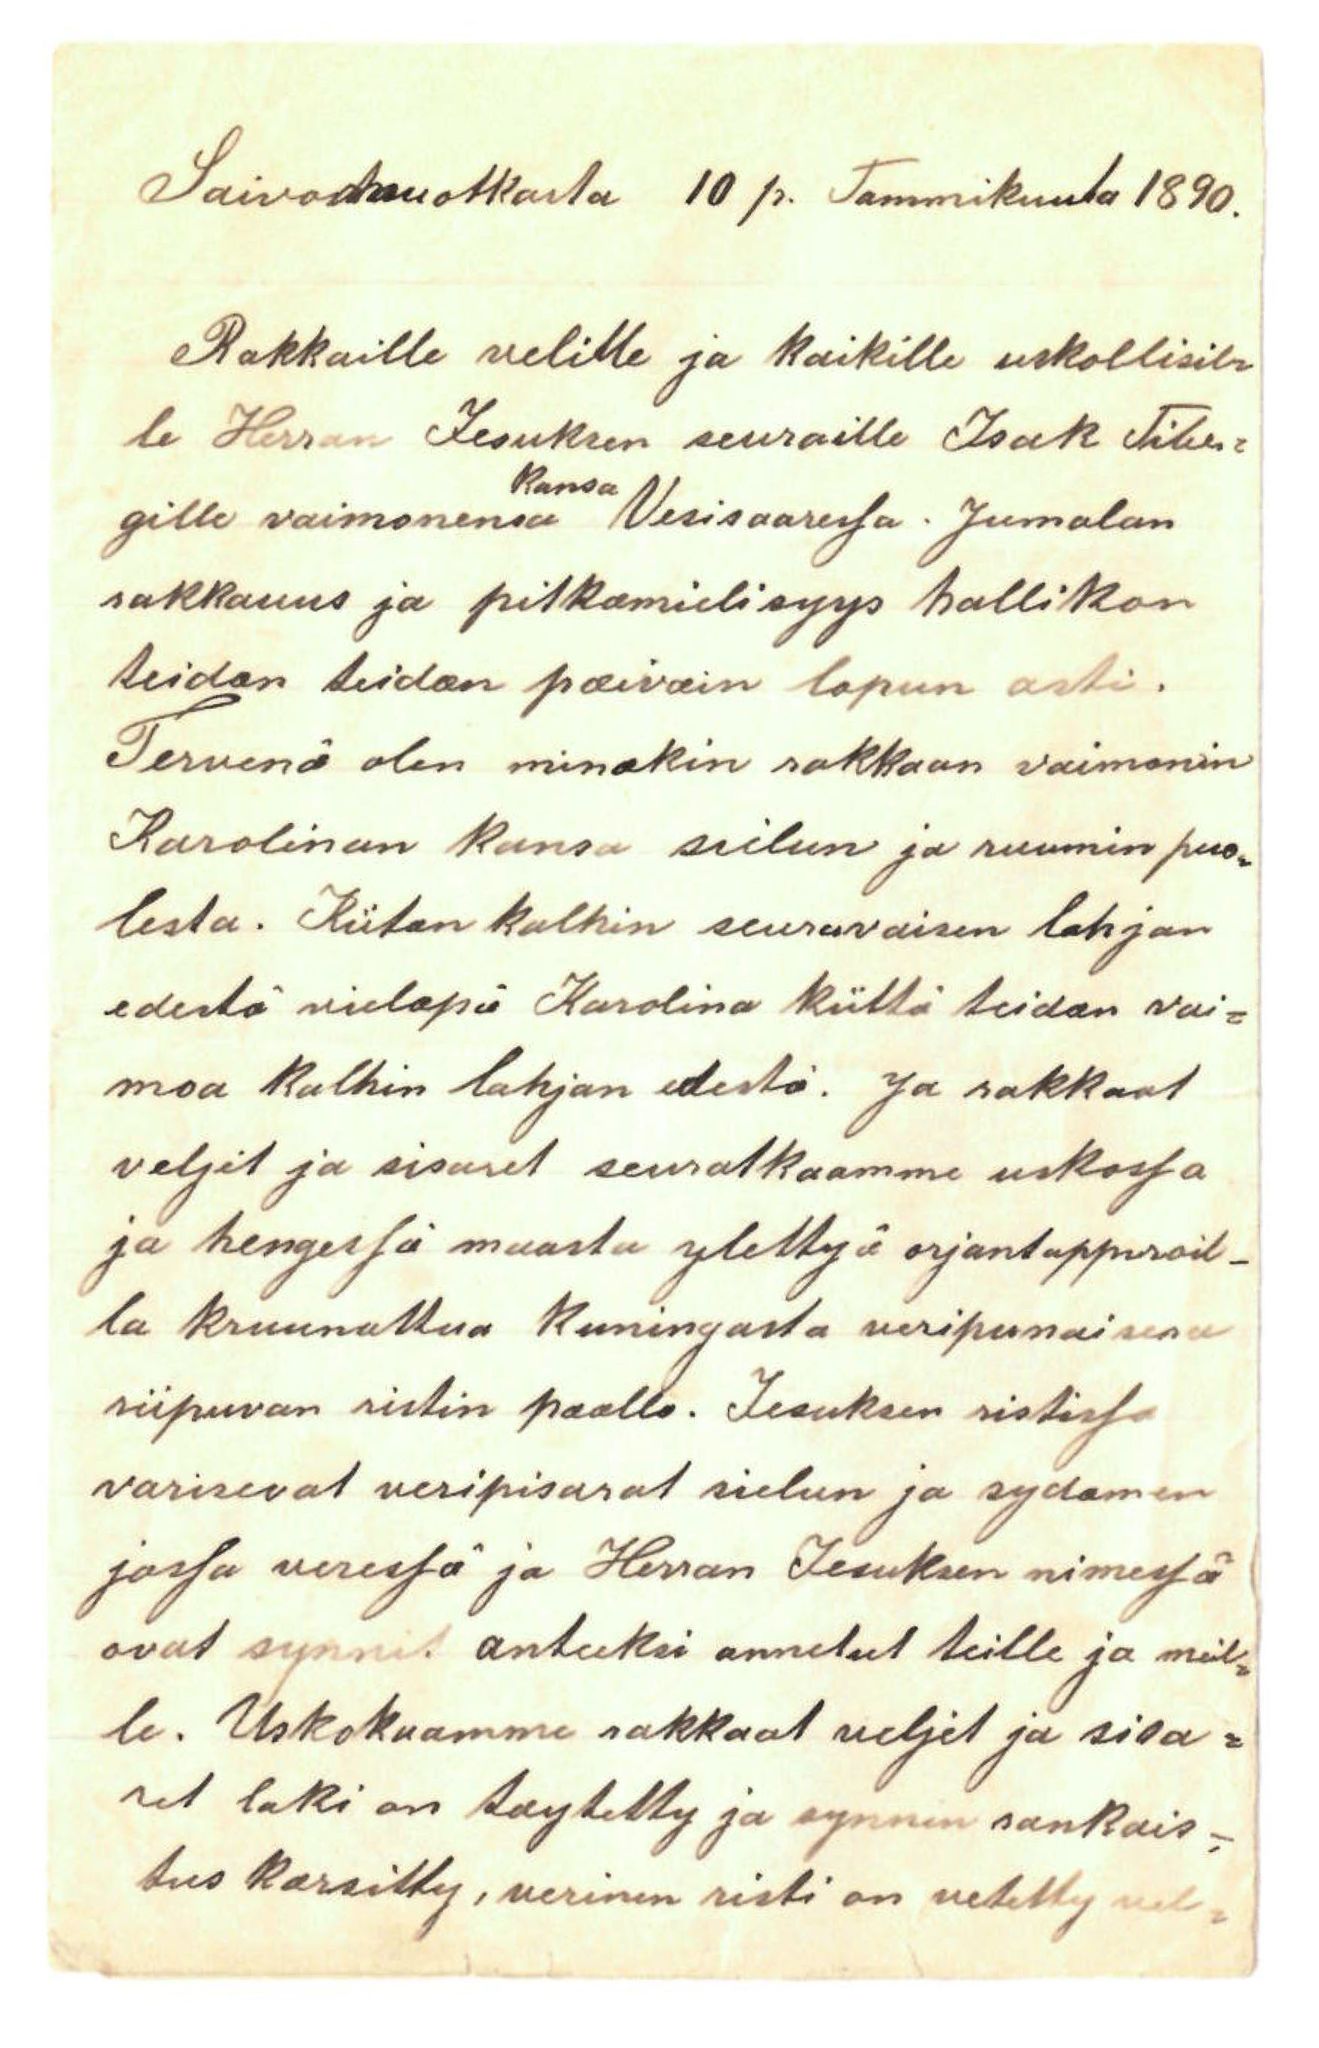 Saivomuotkasta 10 p. Tammikuuta 1890.
Rakkaille velille ja kaikille uskollisil=
le Herran Jesuksen seuraille Isak Tiber=
gille vaimonensa kansa Vesisaaressa. Jumalan
rakkauus ja pitkämielisyys hallikon
teidän teidän päiväin lopun asti.
Tervenä olen minäkin rakkaan vaimonin
Karolinan kansa sielun ja ruumin puo=
lesta. Kiitän kalhin seuravaisen lahjan
edestä vieläpä Karolina kiittä teidän vai=
moa kalhin lahjan edestä. Ja rakkaat
veljet ja sisaret seuratkaamme uskossa
ja hengessä maasta ylettyä orjantappuroil-
la kruunattua kuningasta veripunaisena
riipuvan ristin päällä. Jesuksen ristissä
varisevat veripisarat sielun ja sydämen
jossa veressä ja Herran Jesuksen nimessä
ovat synnit anteeksi annetut teille ja meil=
le. Uskokaamme rakkaat veljet ja sisa=
ret laki on täytetty ja synnin rankais=
tus kärsitty, verinen risti on vetetty vel=